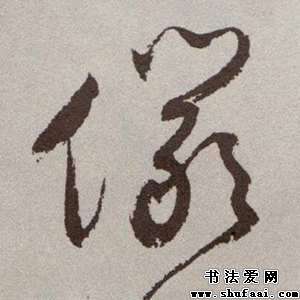 儼
书法爱网
www.shufaai.com